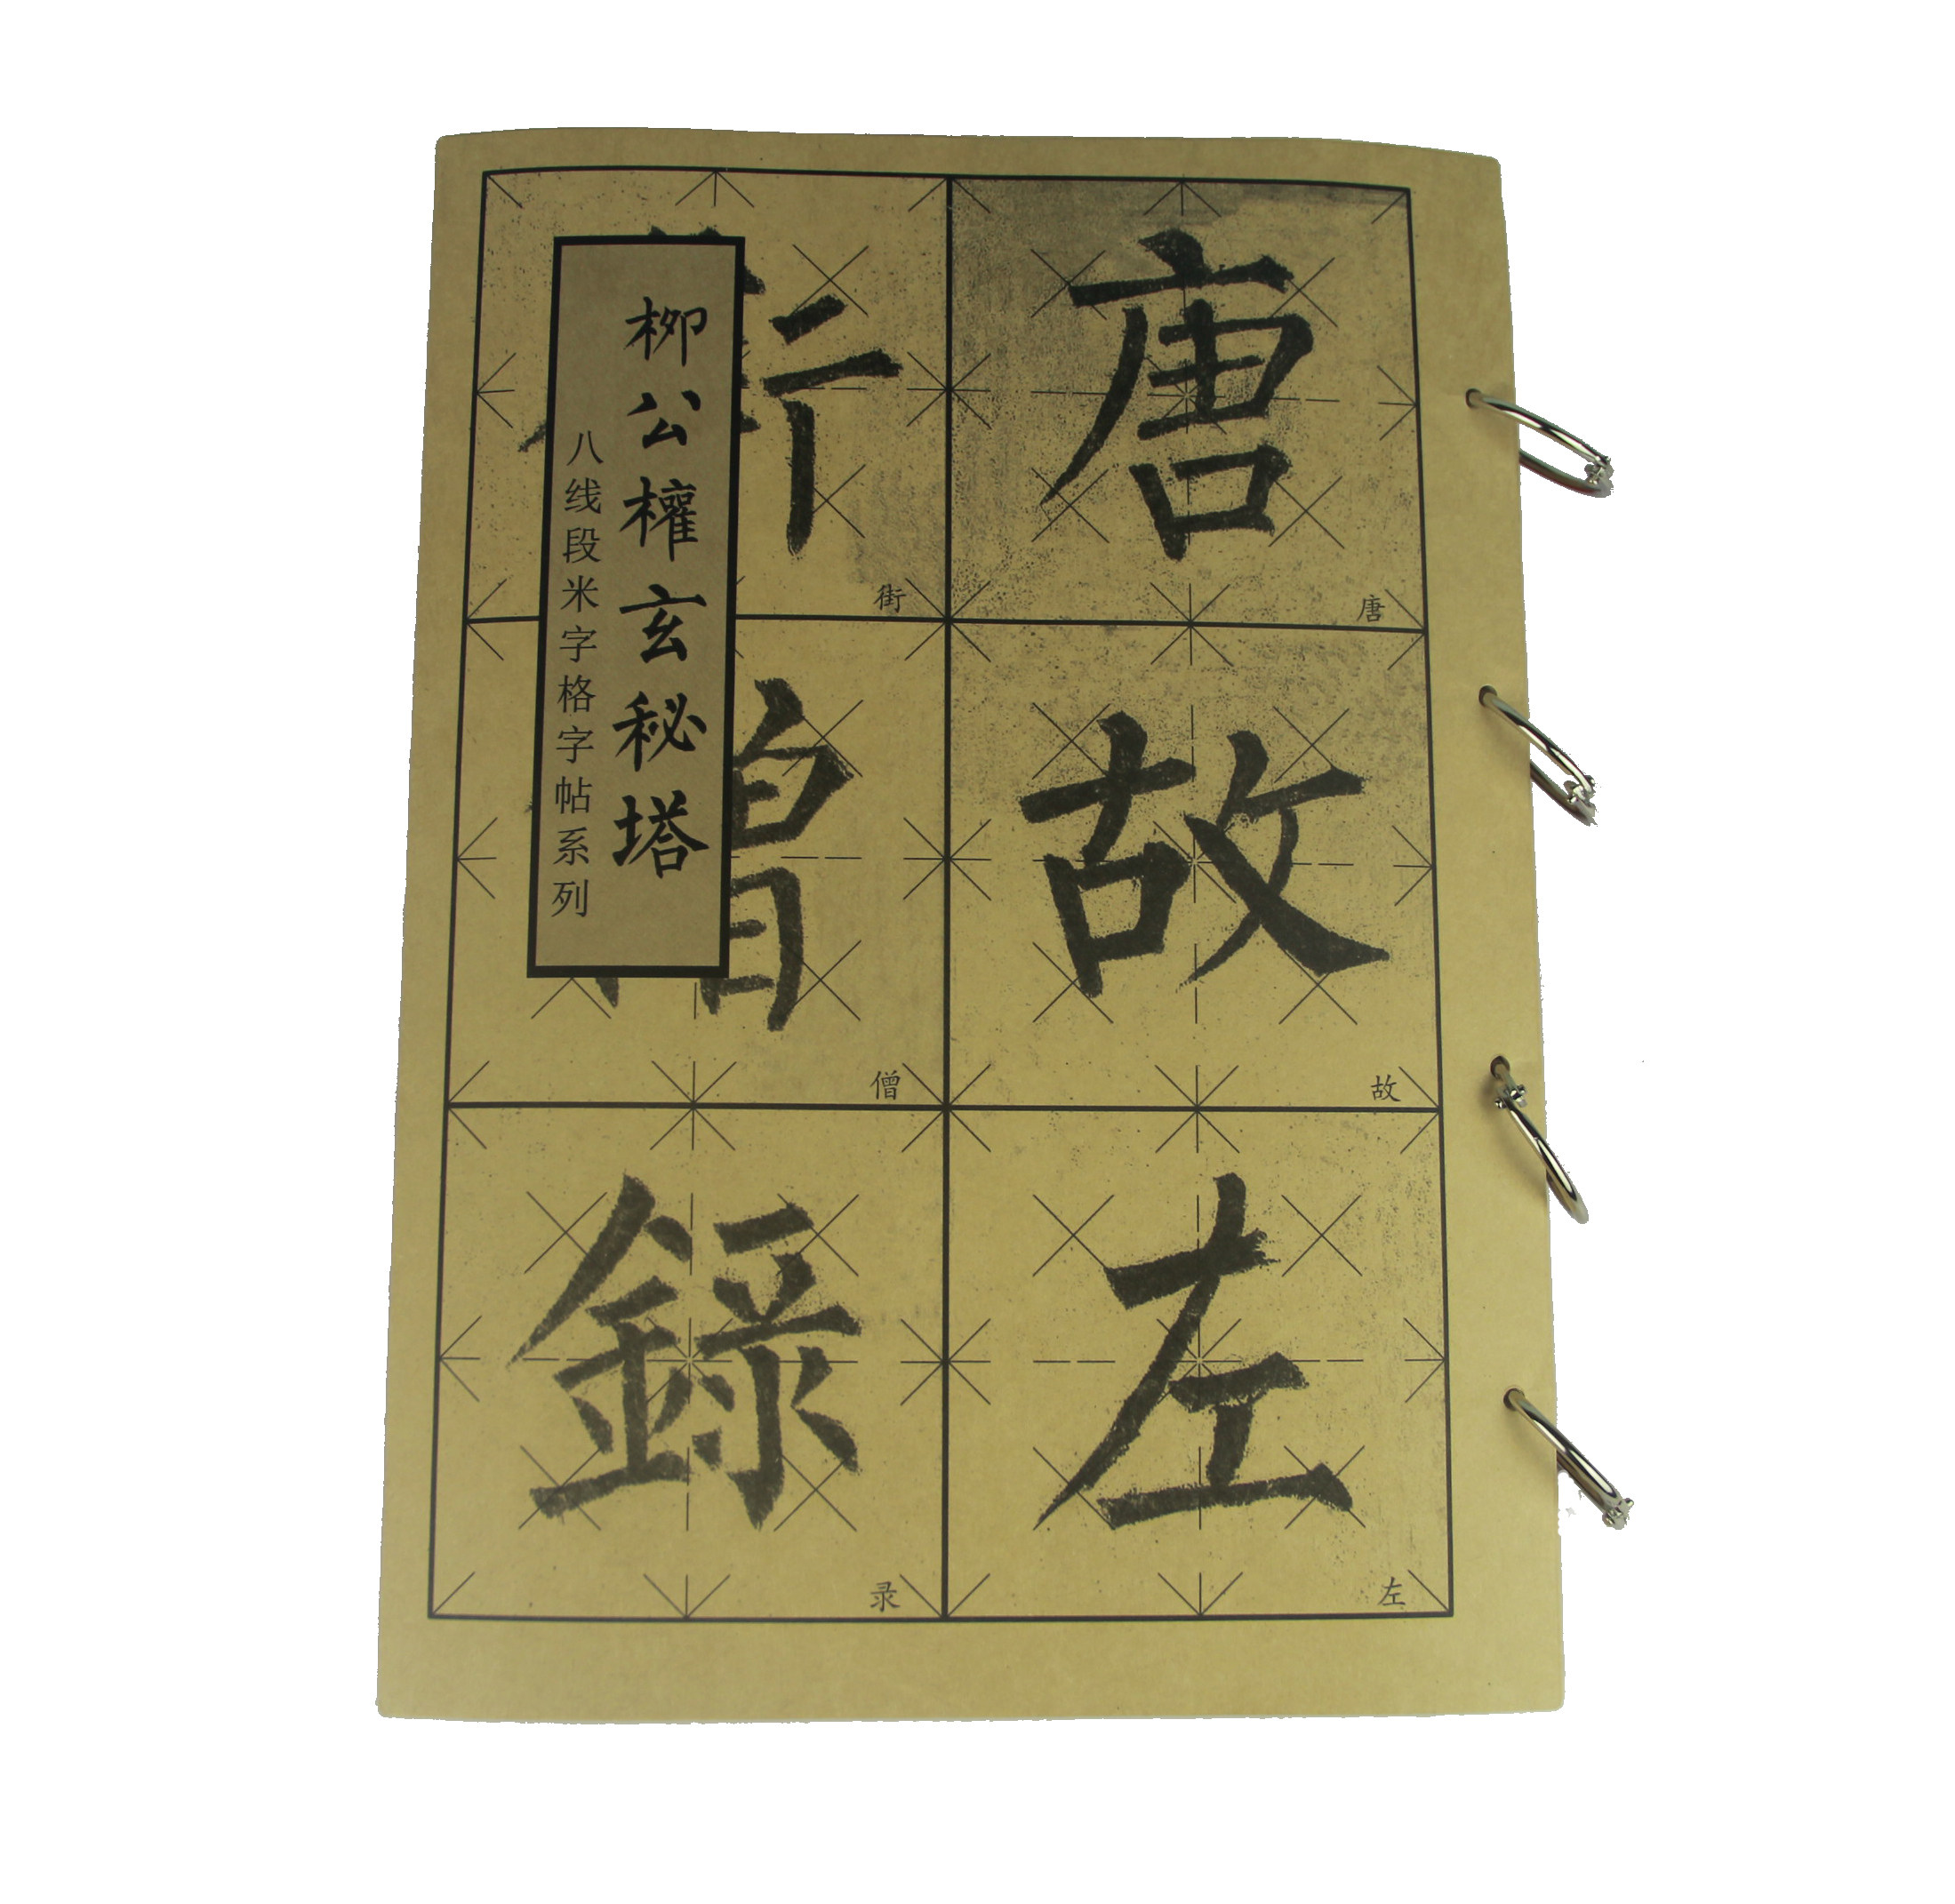 唐
唐
故
故
左
左
街
僧
錄
录
柳公權玄秘塔
八线段米字格字帖系列